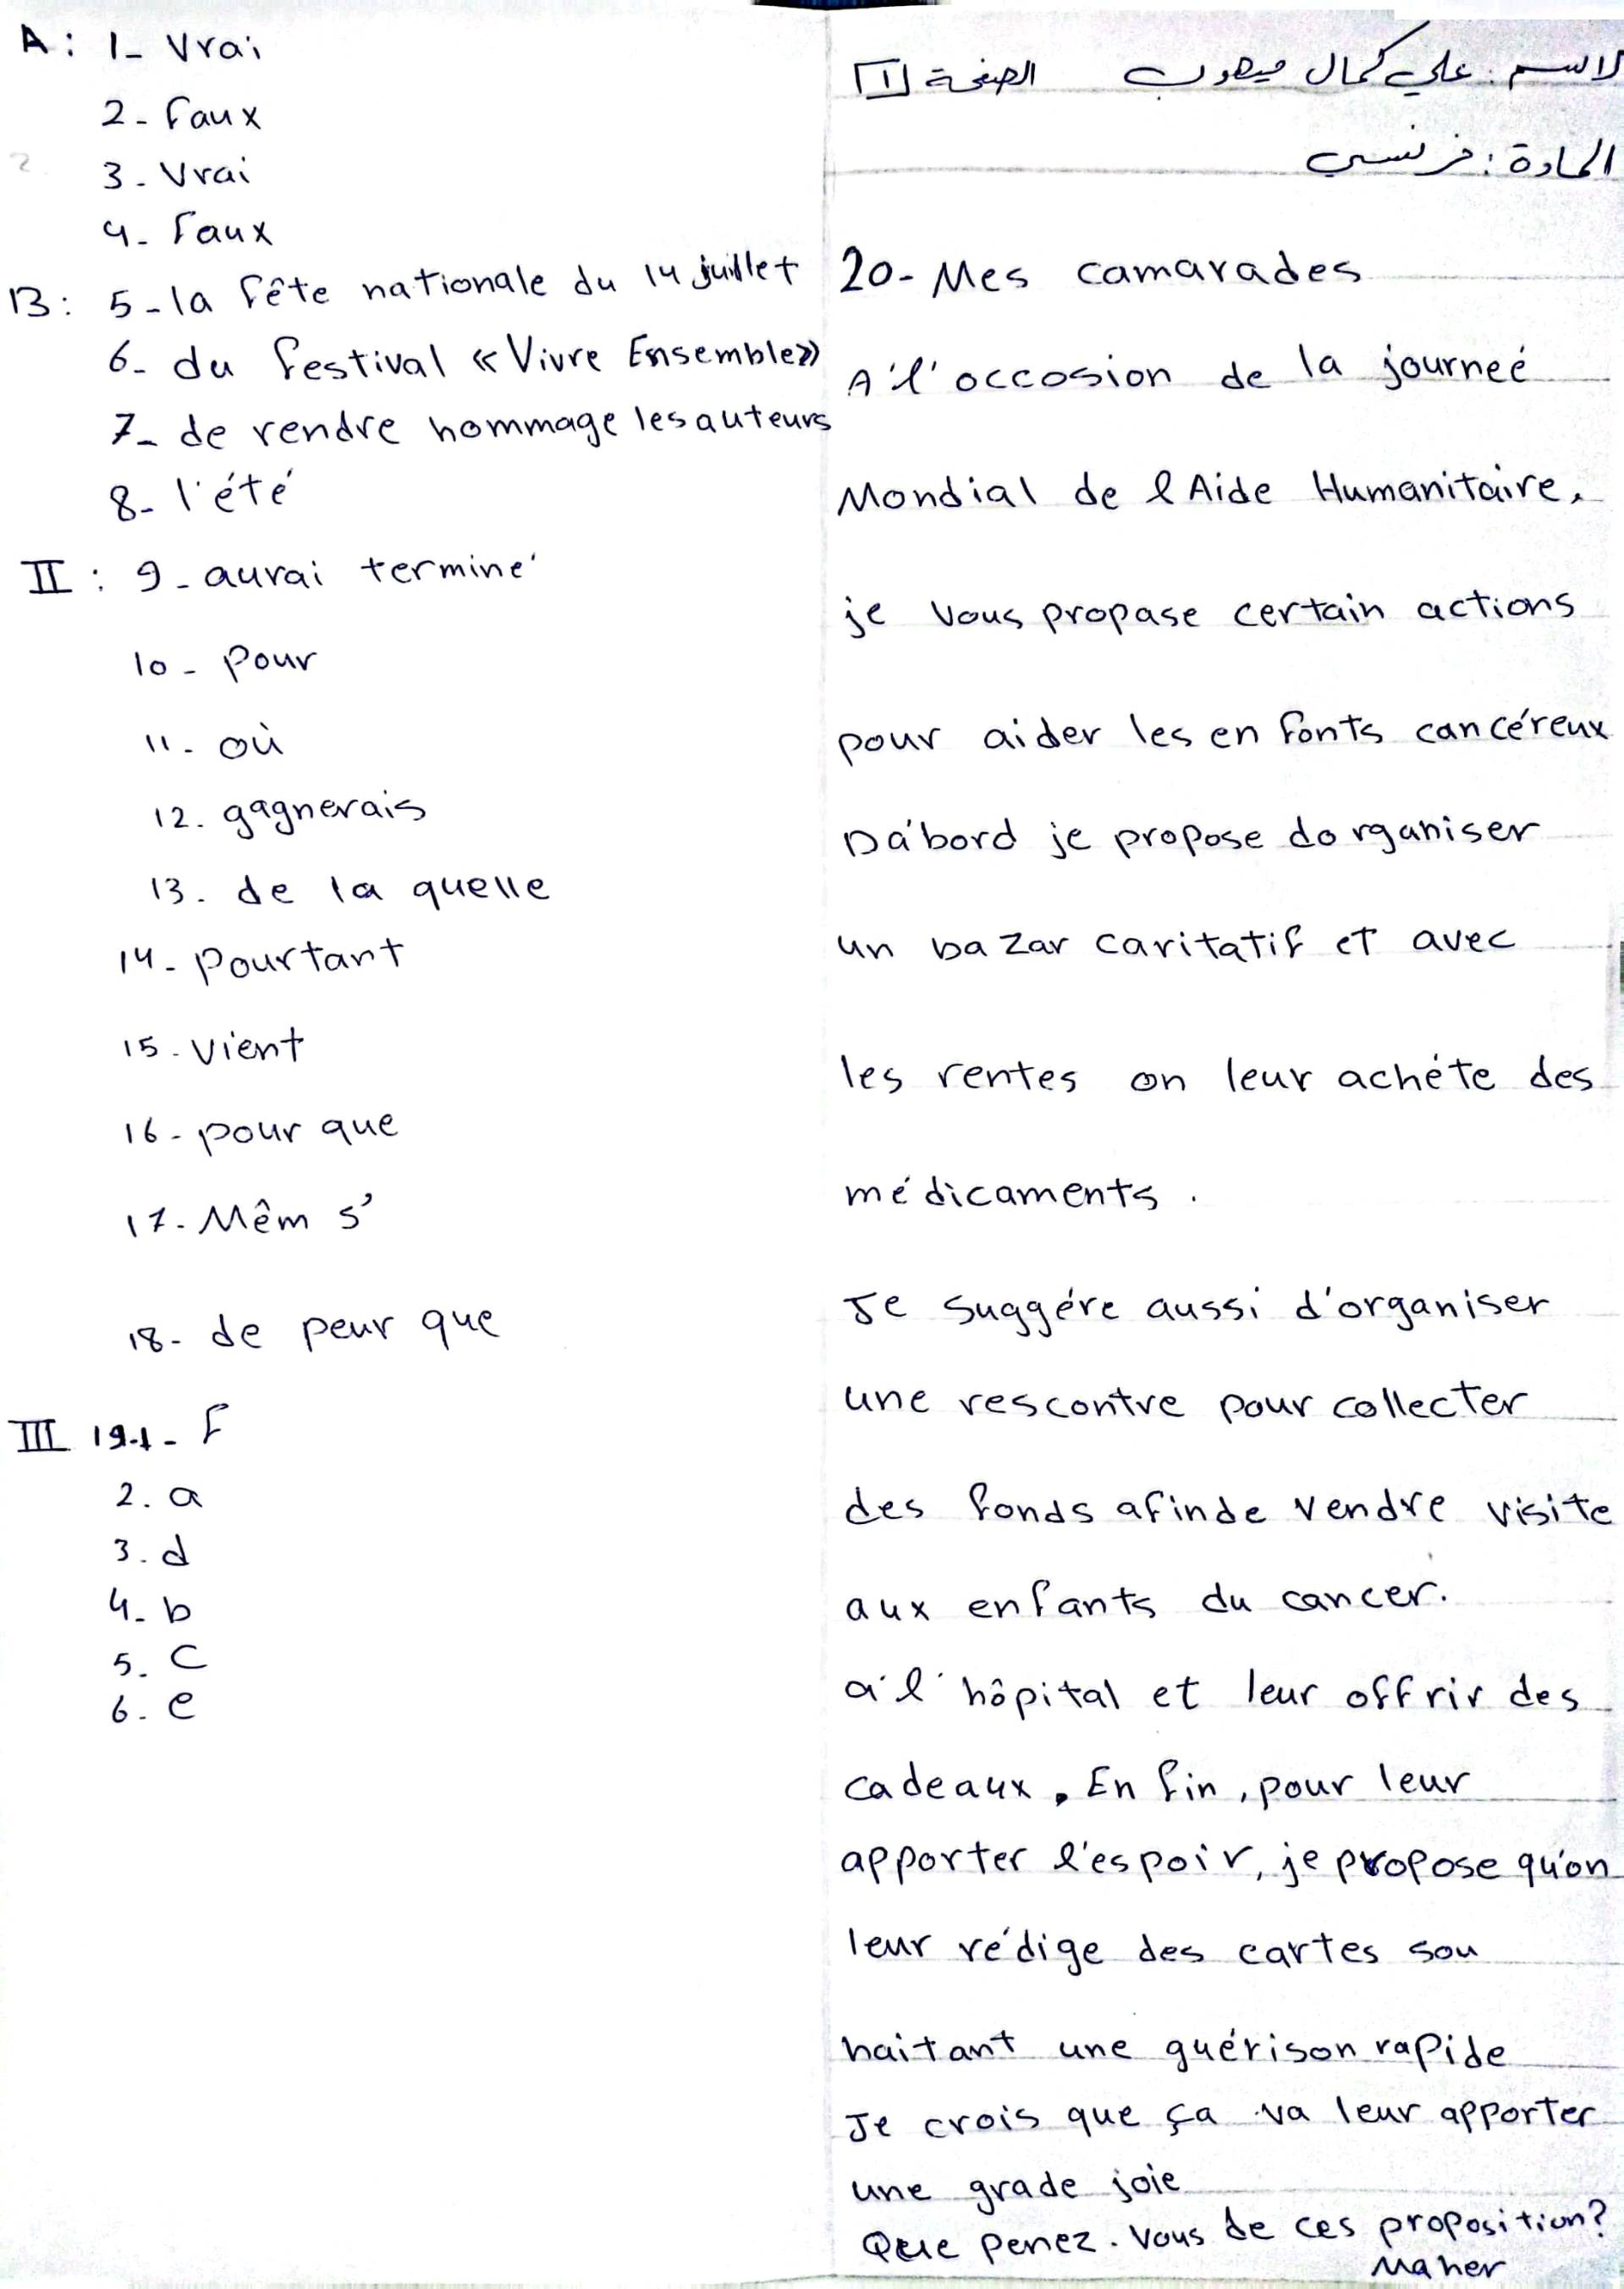 الاسم: علي كمال ميهوب الصفحة ١
المادة: فرنسي
A: 1- Vrai
2- Faux
3- Vrai
4- Faux
B: 5- la fête nationale du 14 juillet
6- du festival « Vivre Ensemble»
7- de rendre hommage les auteurs
8- l'été
II: 9- aurai terminé
10- pour
11- où
12. gagnerais
13. de la quelle
14- pourtant
15- vient
16- pour que
17- Mêm s'
18- de peur que
III 19.1- F
2. a
3. d
4- b
5. C
6- e
20- Mes camarades
A'l'occosion de la journeé
Mondial de l Aide Humanitaire,
je Vous propase certain actions
pour aider les en fonts cancéreux
Dá'bord je propose do rganiser
un bazar caritatif et avec
les rentes on leur achéte des
médicaments.
Je suggére aussi d'organiser
une rescontre pour collecter
des fonds afinde vendre visite
aux enfants du cancer.
a'l'hôpital et leur offrir des
cadeaux. En fin, pour leur
apporter l'espoir, je propose qu'on
leur rédige des cartes sou
haitant une guérison rapide
Je crois que ça va leur apporter
une grade joie
Que penez-Vous de ces proposition?
Maher